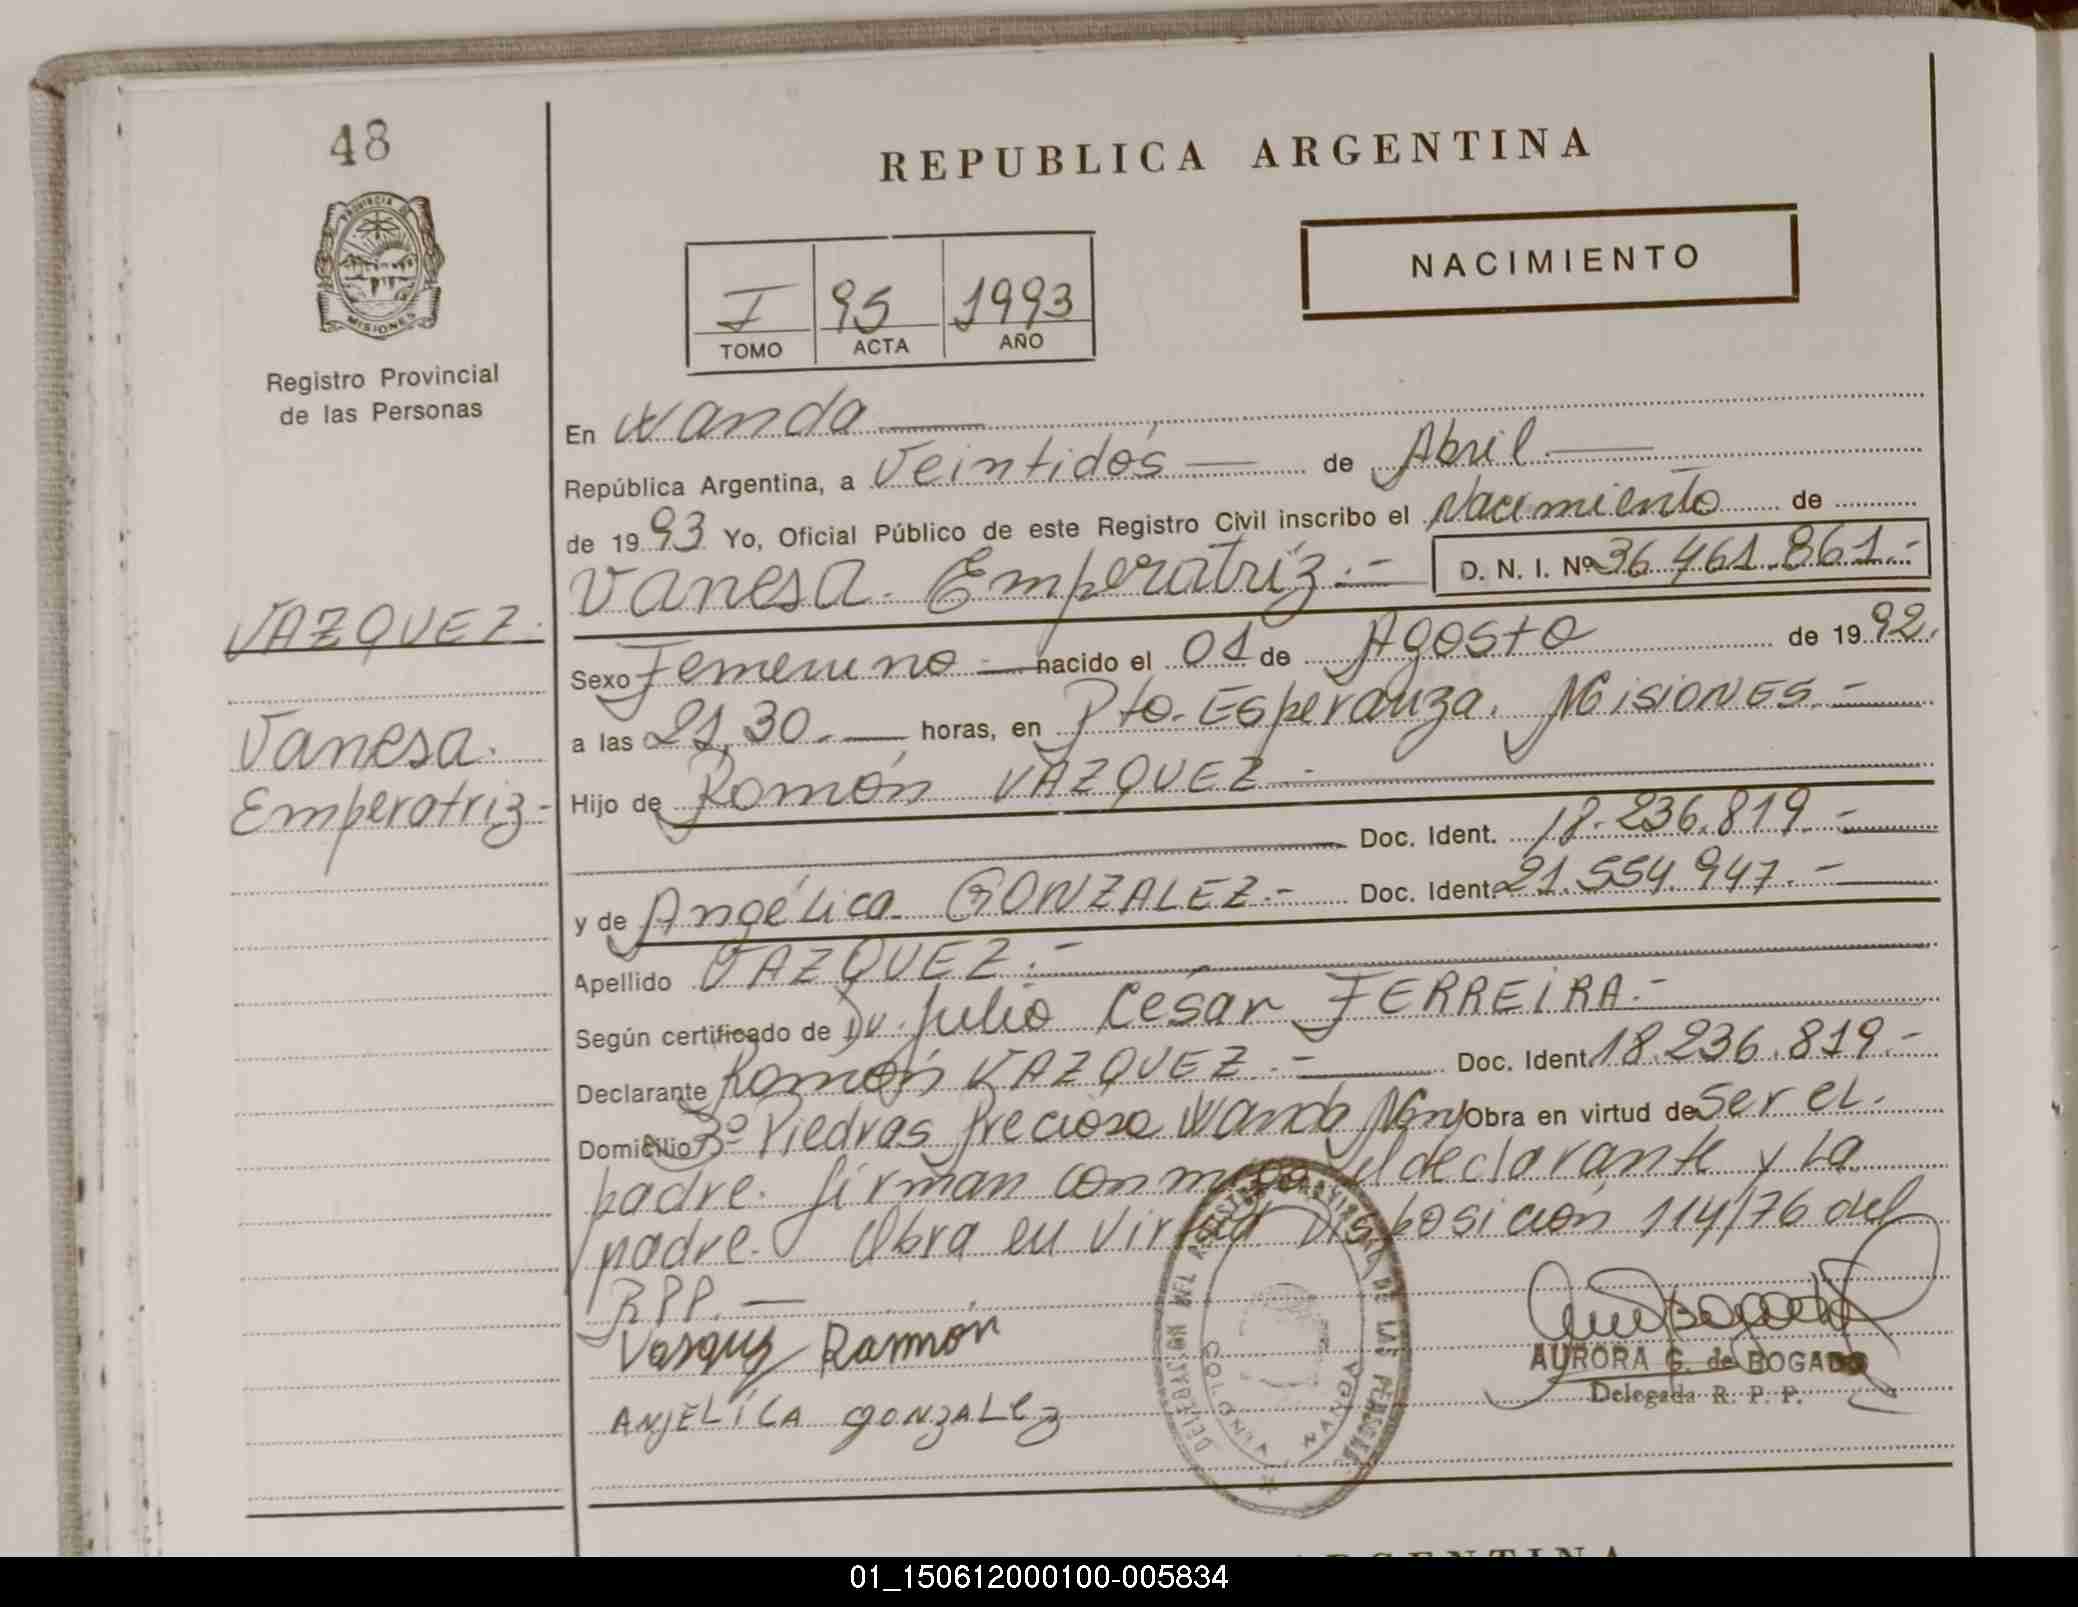 48
PROVINCIA DE
MISIONES
Registro Provincial
de las Personas
REPUBLICA ARGENTINA
NACIMIENTO
I 95 1993
TOMO ACTA AÑO
En Wanda
República Argentina, a Veintidós de Abril
de 1993 Yo, Oficial Público de este Registro Civil inscribo el Nacimiento de
Vanesa Emperatriz.- D. N. I. Nº 36.461.861.-
VAZQUEZ.
Vanesa.
Emperatriz-
Sexo Femenino nacido el 01 de Agosto de 1992.
a las 21,30.- horas, en Pto. Esperanza. Misiones.-
Hijo de Romón VAZQUEZ.-
Doc. Ident. 18.236.819.-
y de Angélica GONZALEZ.- Doc. Ident. 21.554.947.-
Apellido VAZQUEZ.-
Según certificado de Dr. Julio César FERREIRA.-
Declarante Romón VAZQUEZ.- Doc. Ident. 18.236.819.-
Domicilio Bº Piedras Preciosa Wanda Mnes Obra en virtud de Ser el.
padre. firman conmigo el declarante y la
madre. Obra en virtud Disposición 114/76 del
RPP.-
Vasquz Ramon
ANJELICA GONZALEZ
DELEGACION DEL REGISTRO PROVINCIAL DE LAS PERSONAS
COLONIA WANDA
AURORA G. de BOGADO
Delegada R. P. P.
ARGENTINA
01_150612000100-005834